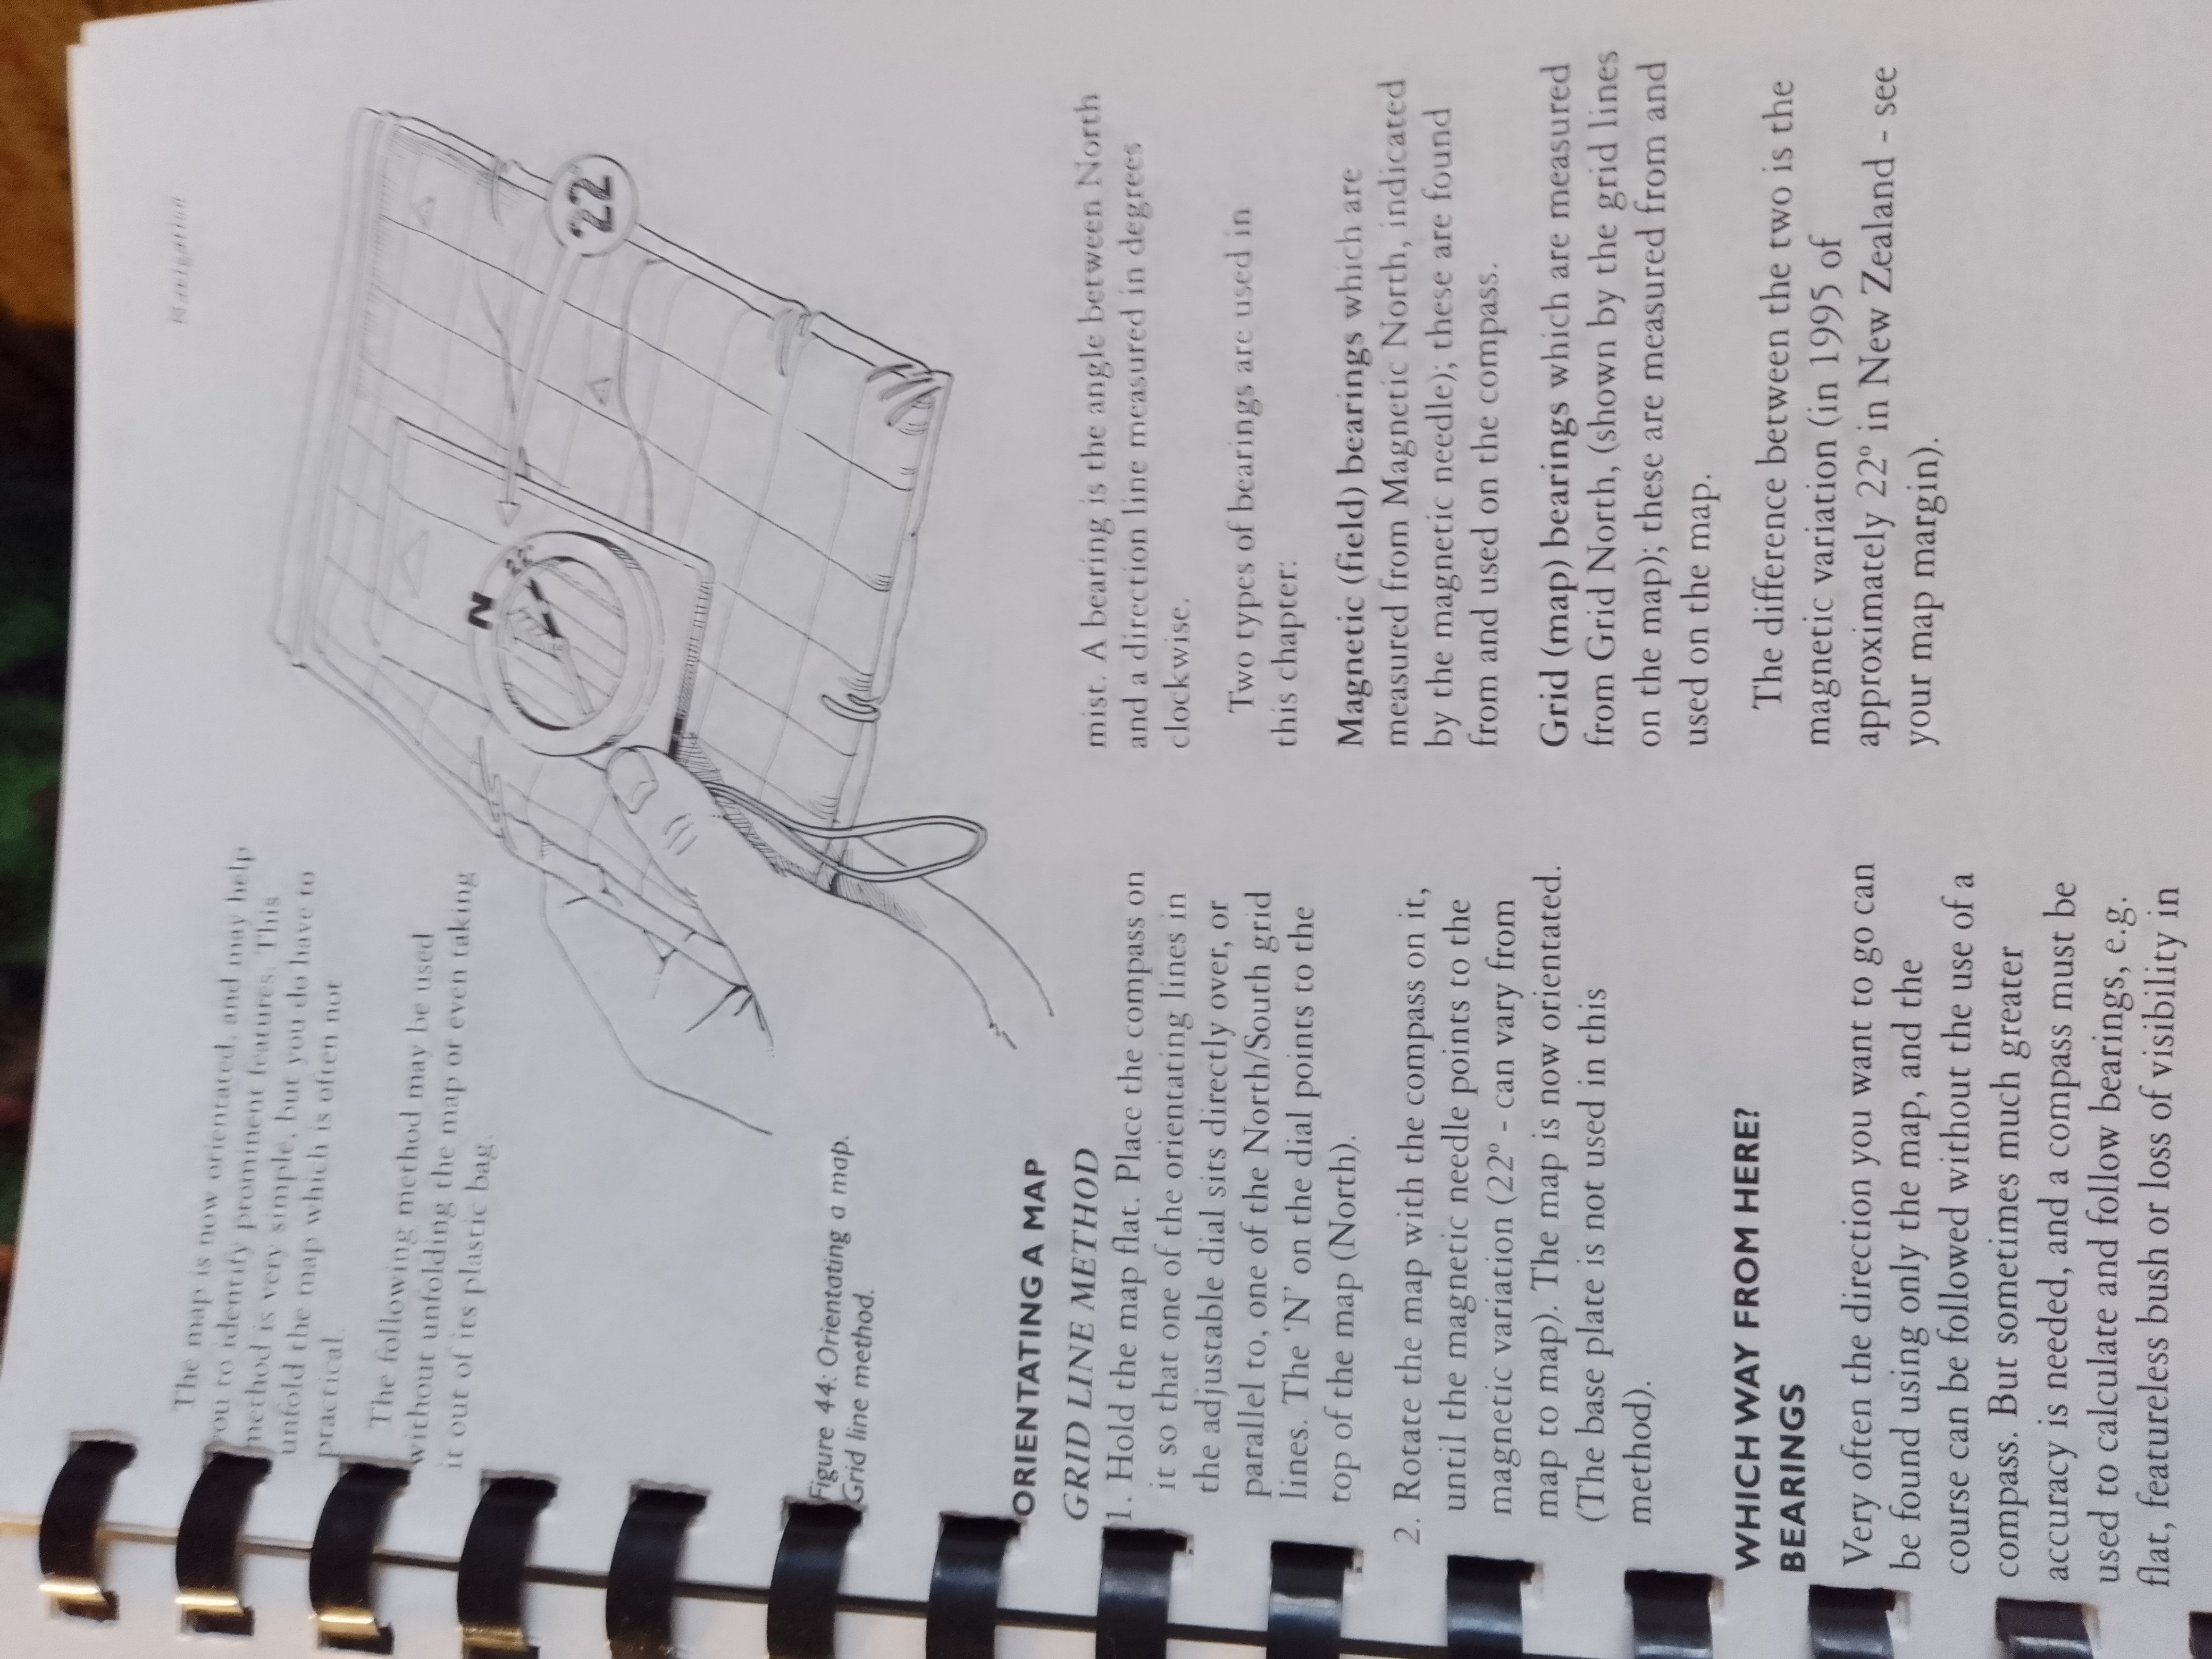 Navigation
The map is now orientated, and may help
you to identify prominent features. This
method is very simple, but you do have to
unfold the map which is often not
practical.
The following method may be used
without unfolding the map or even taking
it out of its plastic bag.
N
22°
22°
Figure 44: Orientating a map.
Grid line method.
ORIENTATING A MAP
GRID LINE METHOD
1. Hold the map flat. Place the compass on
it so that one of the orientating lines in
the adjustable dial sits directly over, or
parallel to, one of the North/South grid
lines. The ‘N’ on the dial points to the
top of the map (North).
2. Rotate the map with the compass on it,
until the magnetic needle points to the
magnetic variation (22° - can vary from
map to map). The map is now orientated.
(The base plate is not used in this
method).
WHICH WAY FROM HERE?
BEARINGS
Very often the direction you want to go can
be found using only the map, and the
course can be followed without the use of a
compass. But sometimes much greater
accuracy is needed, and a compass must be
used to calculate and follow bearings, e.g.
flat, featureless bush or loss of visibility in
mist. A bearing is the angle between North
and a direction line measured in degrees
clockwise.
Two types of bearings are used in
this chapter:
Magnetic (field) bearings which are
measured from Magnetic North, indicated
by the magnetic needle); these are found
from and used on the compass.
Grid (map) bearings which are measured
from Grid North, (shown by the grid lines
on the map); these are measured from and
used on the map.
The difference between the two is the
magnetic variation (in 1995 of
approximately 22° in New Zealand - see
your map margin).